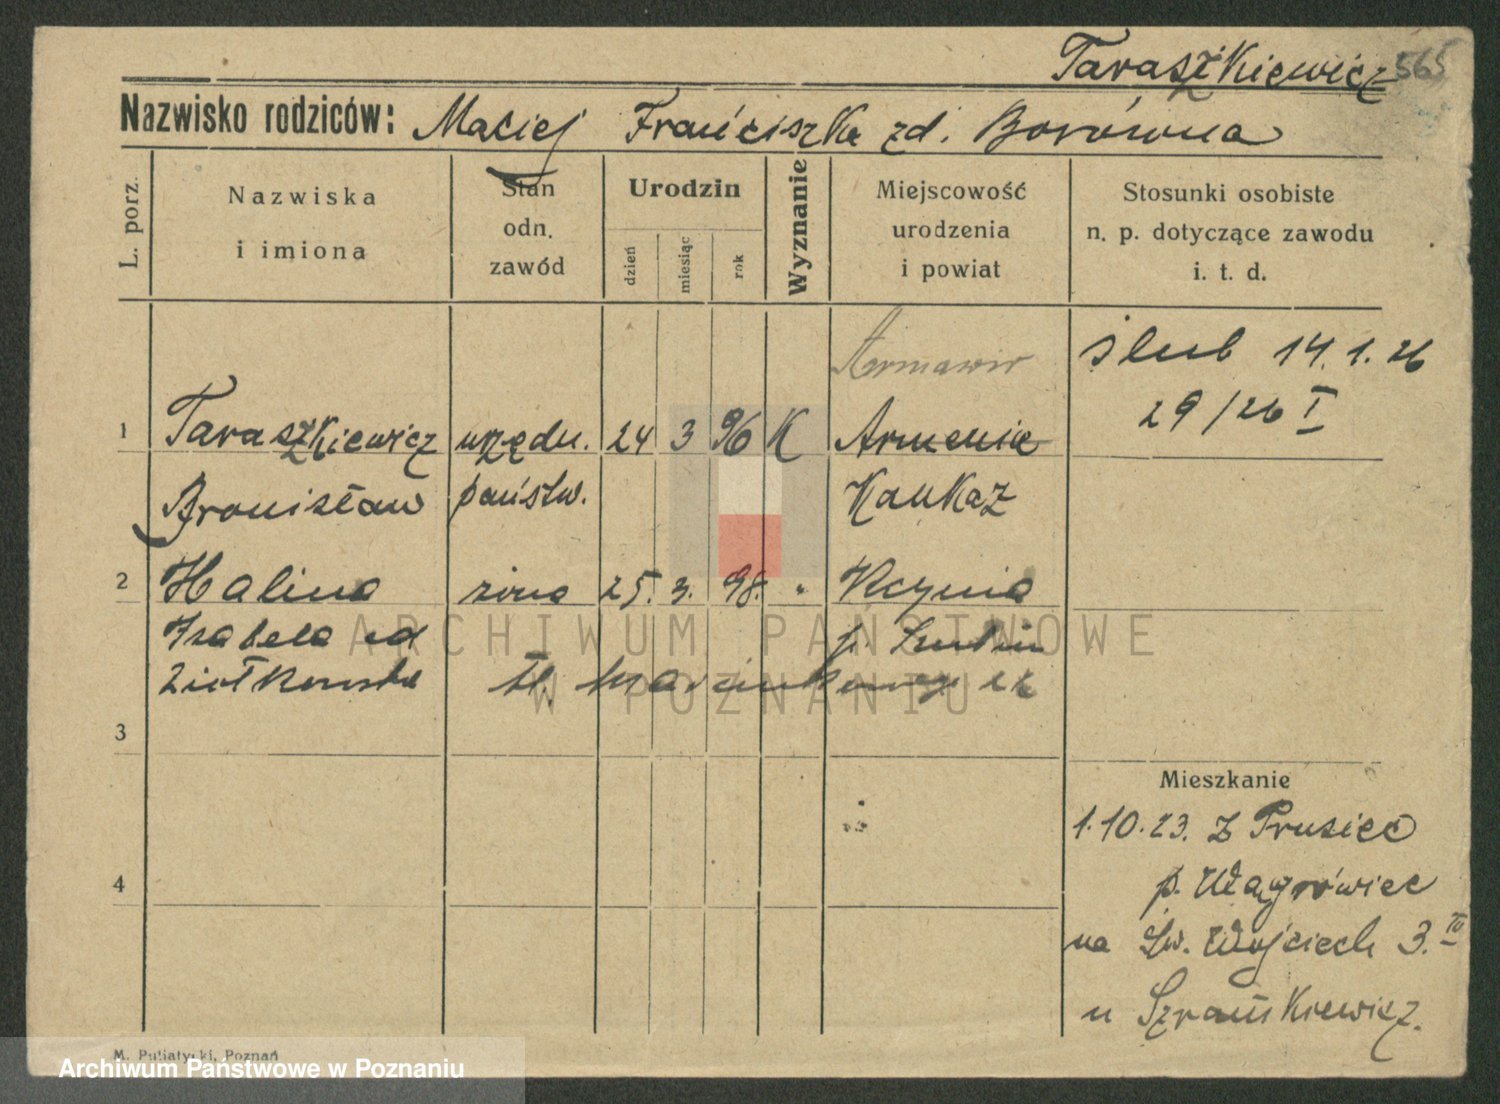 Taraszkiewicz 565
Nazwisko rodziców: Maciej Franciszka zd. Borówna
L. porz.
Nazwiska
i imiona
Stan
odn.
zawód
Urodzin
dzień
miesiąc
rok
Wyznanie
Miejscowość
urodzenia
i powiat
Stosunki osobiste
n. p. dotyczące zawodu
i. t. d.
Armawir
ślub 14.1.26
29/26 I
1 Taraszkiewicz urzędn. 24 3 96 K Armenia
Bronisław państw. Kaukaz
2 Halina żona 25. 3. 98. " Kcynia
Izabela p. Szubin
Ziółkowska
3
Mieszkanie
1.10.23. z Prusiec
4
p. Wągrówiec
na Św. Wojciech 3. IV
u Szramkiewicz.
M. Puljatycki, Poznań
ARCHIWUM PAŃSTWOWE
W POZNANIU
Archiwum Państwowe w Poznaniu